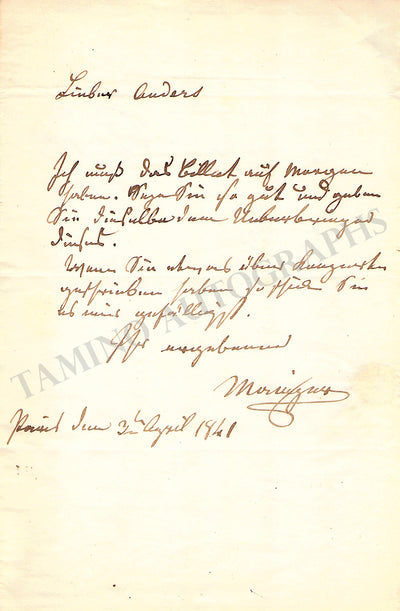 Lieber Anders
Ich muß das Billet auf Morgen
haben. Seyn Sie so gut und geben
Sie dieselbe dem Ueberbringer
dieses.
Wenn Sie etwas über Konzerte
geschrieben haben so schicken Sie
es mir gefälligst.
Ihr ergebener
Paris den 3t April 1841
TAMINO AUTOGRAPHS